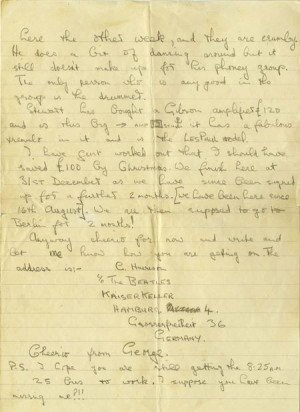 here the other week, and they are crumby
He does a bit of dancing around but it
still doesn't make up for his phoney group.
The only person who is any good in the
group is the drummer.
Stewart has bought a Gibson amplifier £120
and is this big → but it has a fabulous
tremolo in it and is the Les Paul model.
I have just worked out that I should have
saved £100 by Christmas. We finish here at
31st December as we have since been signed
up for a further 2 months. (We have been here since
16th August). We are then supposed to go to
Berlin for 2 months!
Anyway cheerio for now and write and
let me know how you are getting on. The
address is:- G Harrison
℅ The Beatles
KAISERKELLER
HAMBURG 4.
Grosse Freiheit 36
GERMANY.
Cheerio from George.
P.S. I hope you are still getting the 8.25am
25 Bus to work. I suppose you have been
missing me?!!!